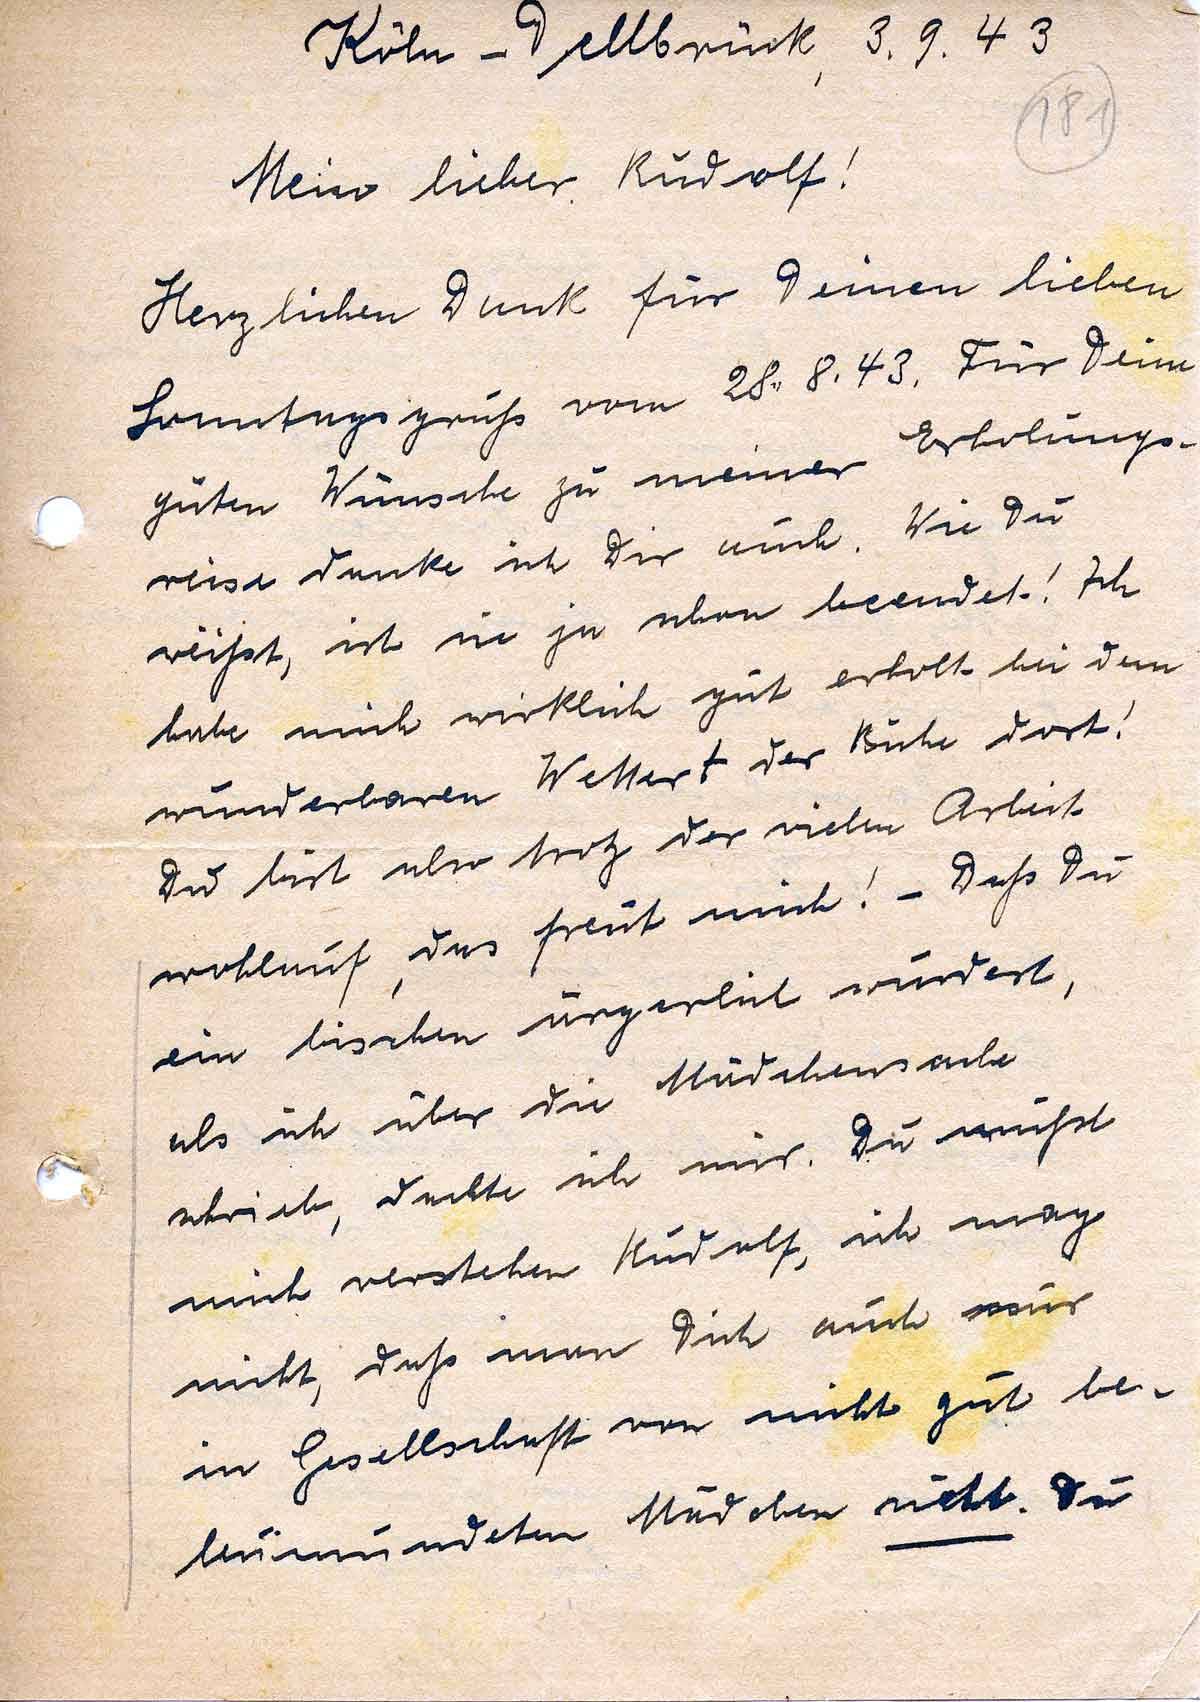 Köln-Dellbrück, 3.9.43
181
Mein lieber Rudolf!
Herzlichen Dank für Deinen lieben
Sonntagsgruß vom 28. 8. 43. Für Deine
guten Wünsche zu meiner Erholungs-
reise danke ich Dir auch. Wie Du
weißt, ist sie ja schon beendet! Ich
habe mich wirklich gut erholt bei dem
wunderbaren Wetter + der Ruhe dort!
Du bist also trotz der vielen Arbeit
wohlauf, das freut mich! - Daß Du
ein bischen ärgerlich würdest,
als ich über die Mädchensache
schrieb, dachte ich mir. Du mußt
mich verstehen Rudolf, ich mag
nicht, daß man Dich auch nur
in Gesellschaft von nicht gut be-
leumundeten Mädchen sieht. Du